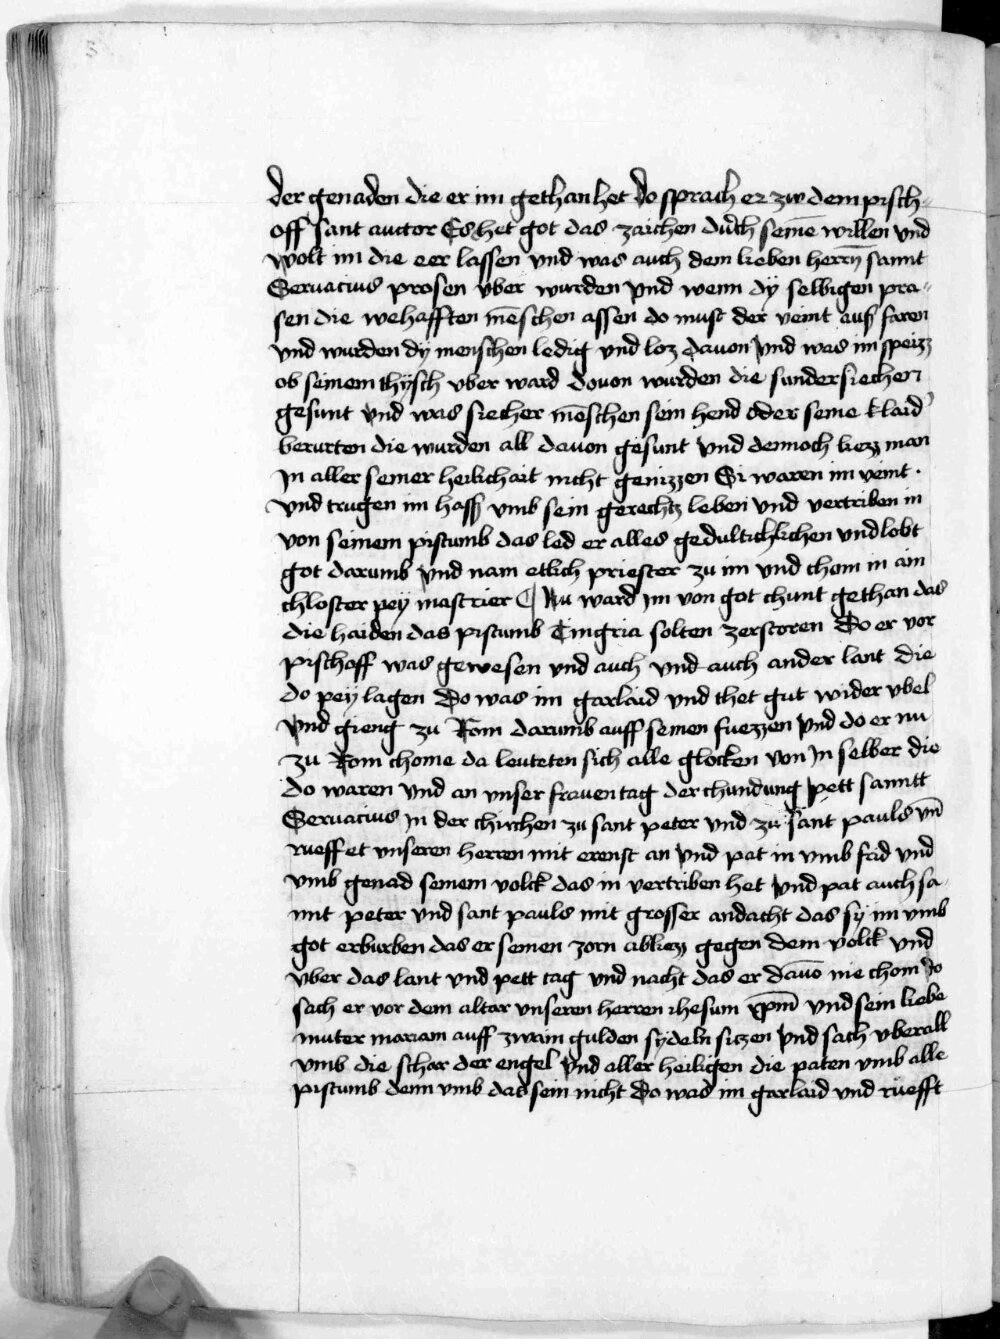 der genaden die er im gethan het do sprach er zw dem pisch-
off sant auctor Es het got das zaichen durch seinē willen vnd
wolt im die eer lassen vnd was auch dem lieben herrn̄ sannt
Seruacius prosen vber wurden vnd wenn dy selbigen pra-
sen die wehafften mēschen assen do must der veint aus faren
vnd wurden dy menschen ledig vnd loz dauon vnd was im speizz
ob seinem thysch vber ward douon wurden die sundersiechen
gesunt vnd was siecher mēschen sein hend oder seine klaid
berurten die wurden all dauon gesunt vnd dennoch liezz man
In aller seiner heilichait nicht genizzen Si waren im veint .
vnd trugen im hass vmb sein gerechtz leben vnd vertriben in
von seinem pistumb das led er alles gedultichlichen vnd lobt
got darumb vnd nam etlich priester zu im vnd chom in ain
chloster pey mastrier ¶ Nu ward im von got chunt gethan das
die haiden das pistumb Tingria solten zerstoren Do er vor
pischoff was gewesen vnd auch vnd auch ander lant die
do pey lagen Do was im gar laid vnd thet gut wider vbel
vnd gieng zu Rom darumb auff seinen fuezzen vnd do er nu
zu Rom chome da leuteten sich alle glocken von In selber die
do waren vnd an vnser frauen tag der chundung pett sanntt
Seruacius in der chirchen zu sant peter vnd zu sant pauls vn̄
rueffet vnseren herren mit ernst an vnd pat in vmb frid vnd
vmb genad seinem volck das in vertriben het vnd pat auch sa-
nit peter vnd sant pauls mit grosser andacht das sy im vmb
got erburben das er seinen zorn abliezz gegen dem volck vnd
vber das lant vnd pett tag vnd nacht das er dauō nie chom do
sach er vor dem altar vnseren herren ihesum xpm̄ vnd sein liebe
muter mariam auff zwain gulden sydeln siczen vnd sach vberall
vmb die schar der engel vnd aller heiligen die paten vmb alle
pistumb denn vmb das sein nicht Do was im gar laid vnd rüefft